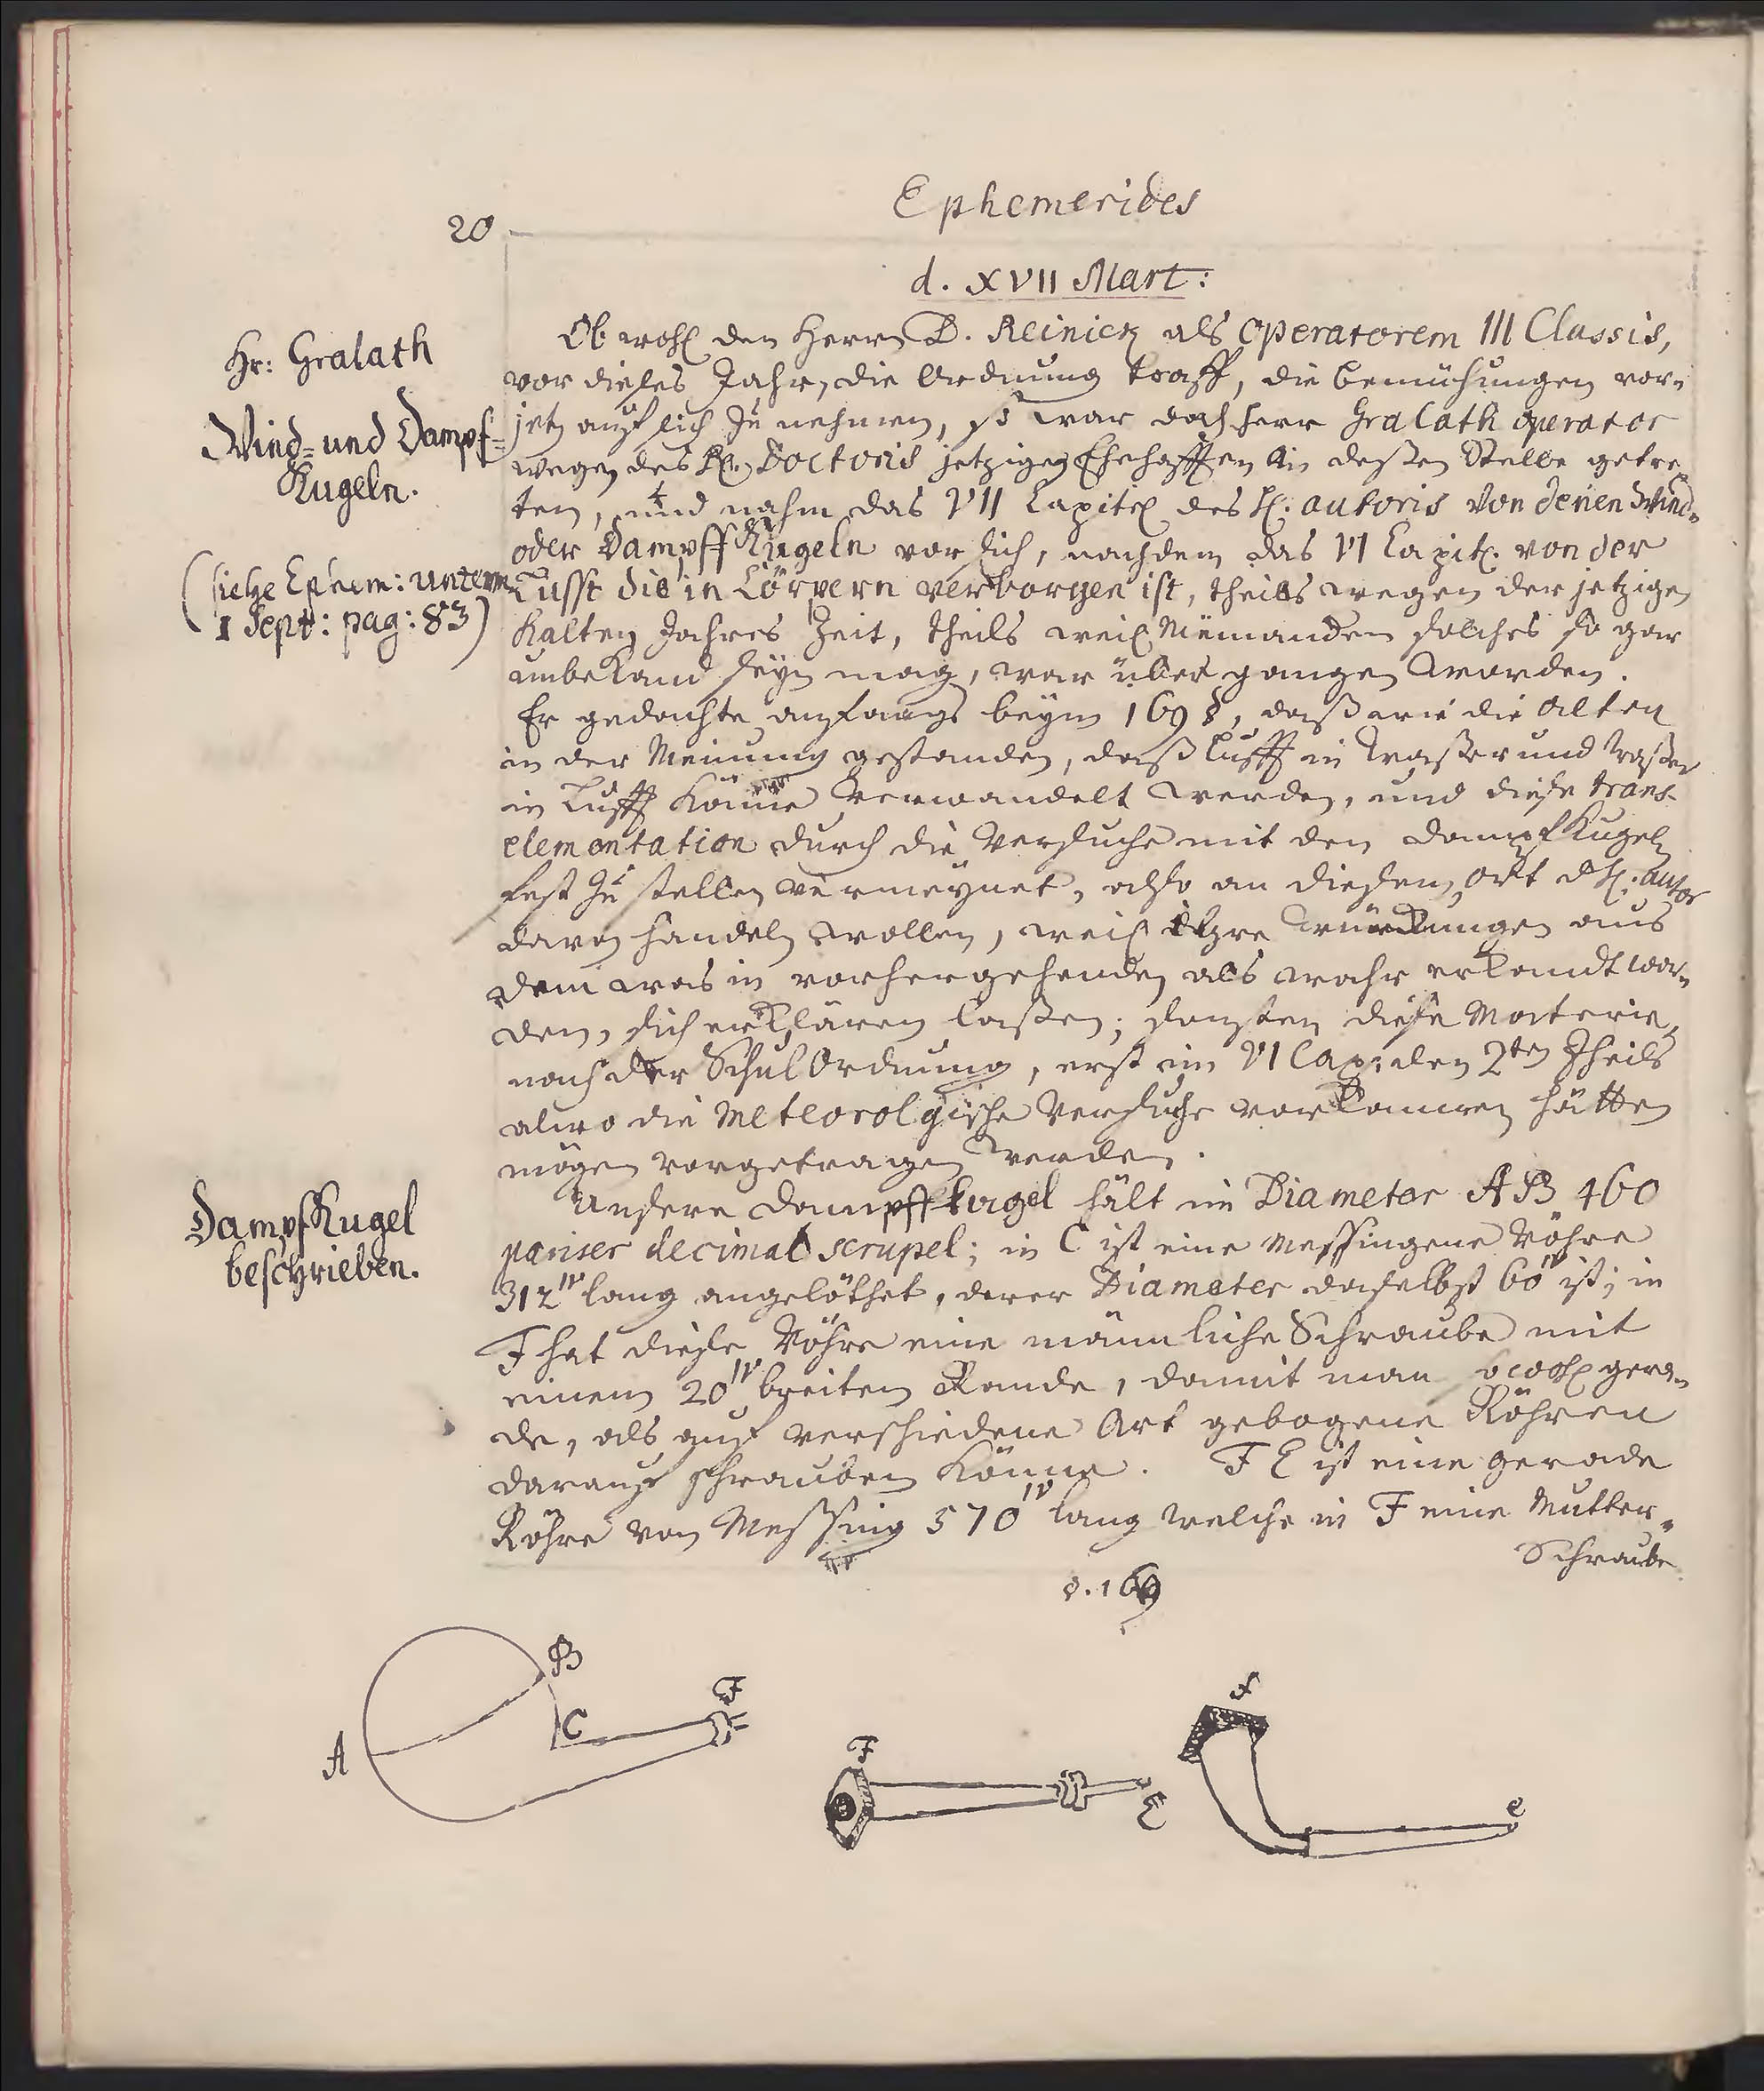 Ephemerides
20
d. XVII Mart:
Hr: Gralath
Wind- und Dampf-
Kugeln.
(siehe Ephem: unterm
1 Sept: pag: 83)
Ob wohl den Herrn D. Reinick als Operatorem III Classis,
vor dieses Jahr, die Ordnung traff, die bemühungen vor-
jetz auf sich zu nehmen, so war doch Herr Gralath operator
wegen des H. Doctoris jetzigen Ehehafften in deßen Stelle getre-
ten, und nahm das VII Capitel des H. autoris von denen Wind-
oder Dampff Kugeln vor sich, nachdem das VI Capit. von der
Lufft die in Cörpern verborgen ist, theils wegen der jetzigen
Kalten Jahres Zeit, theils weil Niemanden solches so gar
unbekand seyn mag, war übergangen worden.
Er gedachte anfangs beym 169 §, daß wie die Alten
in der Meinung gestanden, daß Lufft in Waßer und Waßer
in Lufft könne verwandelt werden, und diese trans-
elementation durch die Versuche mit den Dampf Kugeln
fest zu stellen vermeynet, also an diesem Ort d H. autor
davon handeln wollen, weil ihre Würckungen aus
dem was in vorhergehenden als wahr erkandt wor-
den, sich erklären laßen; sonsten diese Materie,
nach der Schul Ordnung, erst im VI Cap: den 2ten Theils
alwo die Meteorolgische Versuche vorkommen hätten
mögen vorgetragen werden.
Dampf Kugel
beschrieben.
Unsere Dampff kugel hält im Diameter AB 460
pariser decimal scrupel; in C ist eine Messingene Röhre
312''' lang angelöthet, derer Diameter daselbst 60''' ist; in
F hat diese Röhre eine männliche Schraube mit
einem 20''' breiten Rande, damit man sowohl gera-
de, als auf verschiedene Art gebogene Röhren
darauf schrauben könne. F E ist eine gerade
Röhre von Messing 570''' lang welche in F eine Mutter-
Schraube
§. 169
A
B
C
F
F
E
f
e